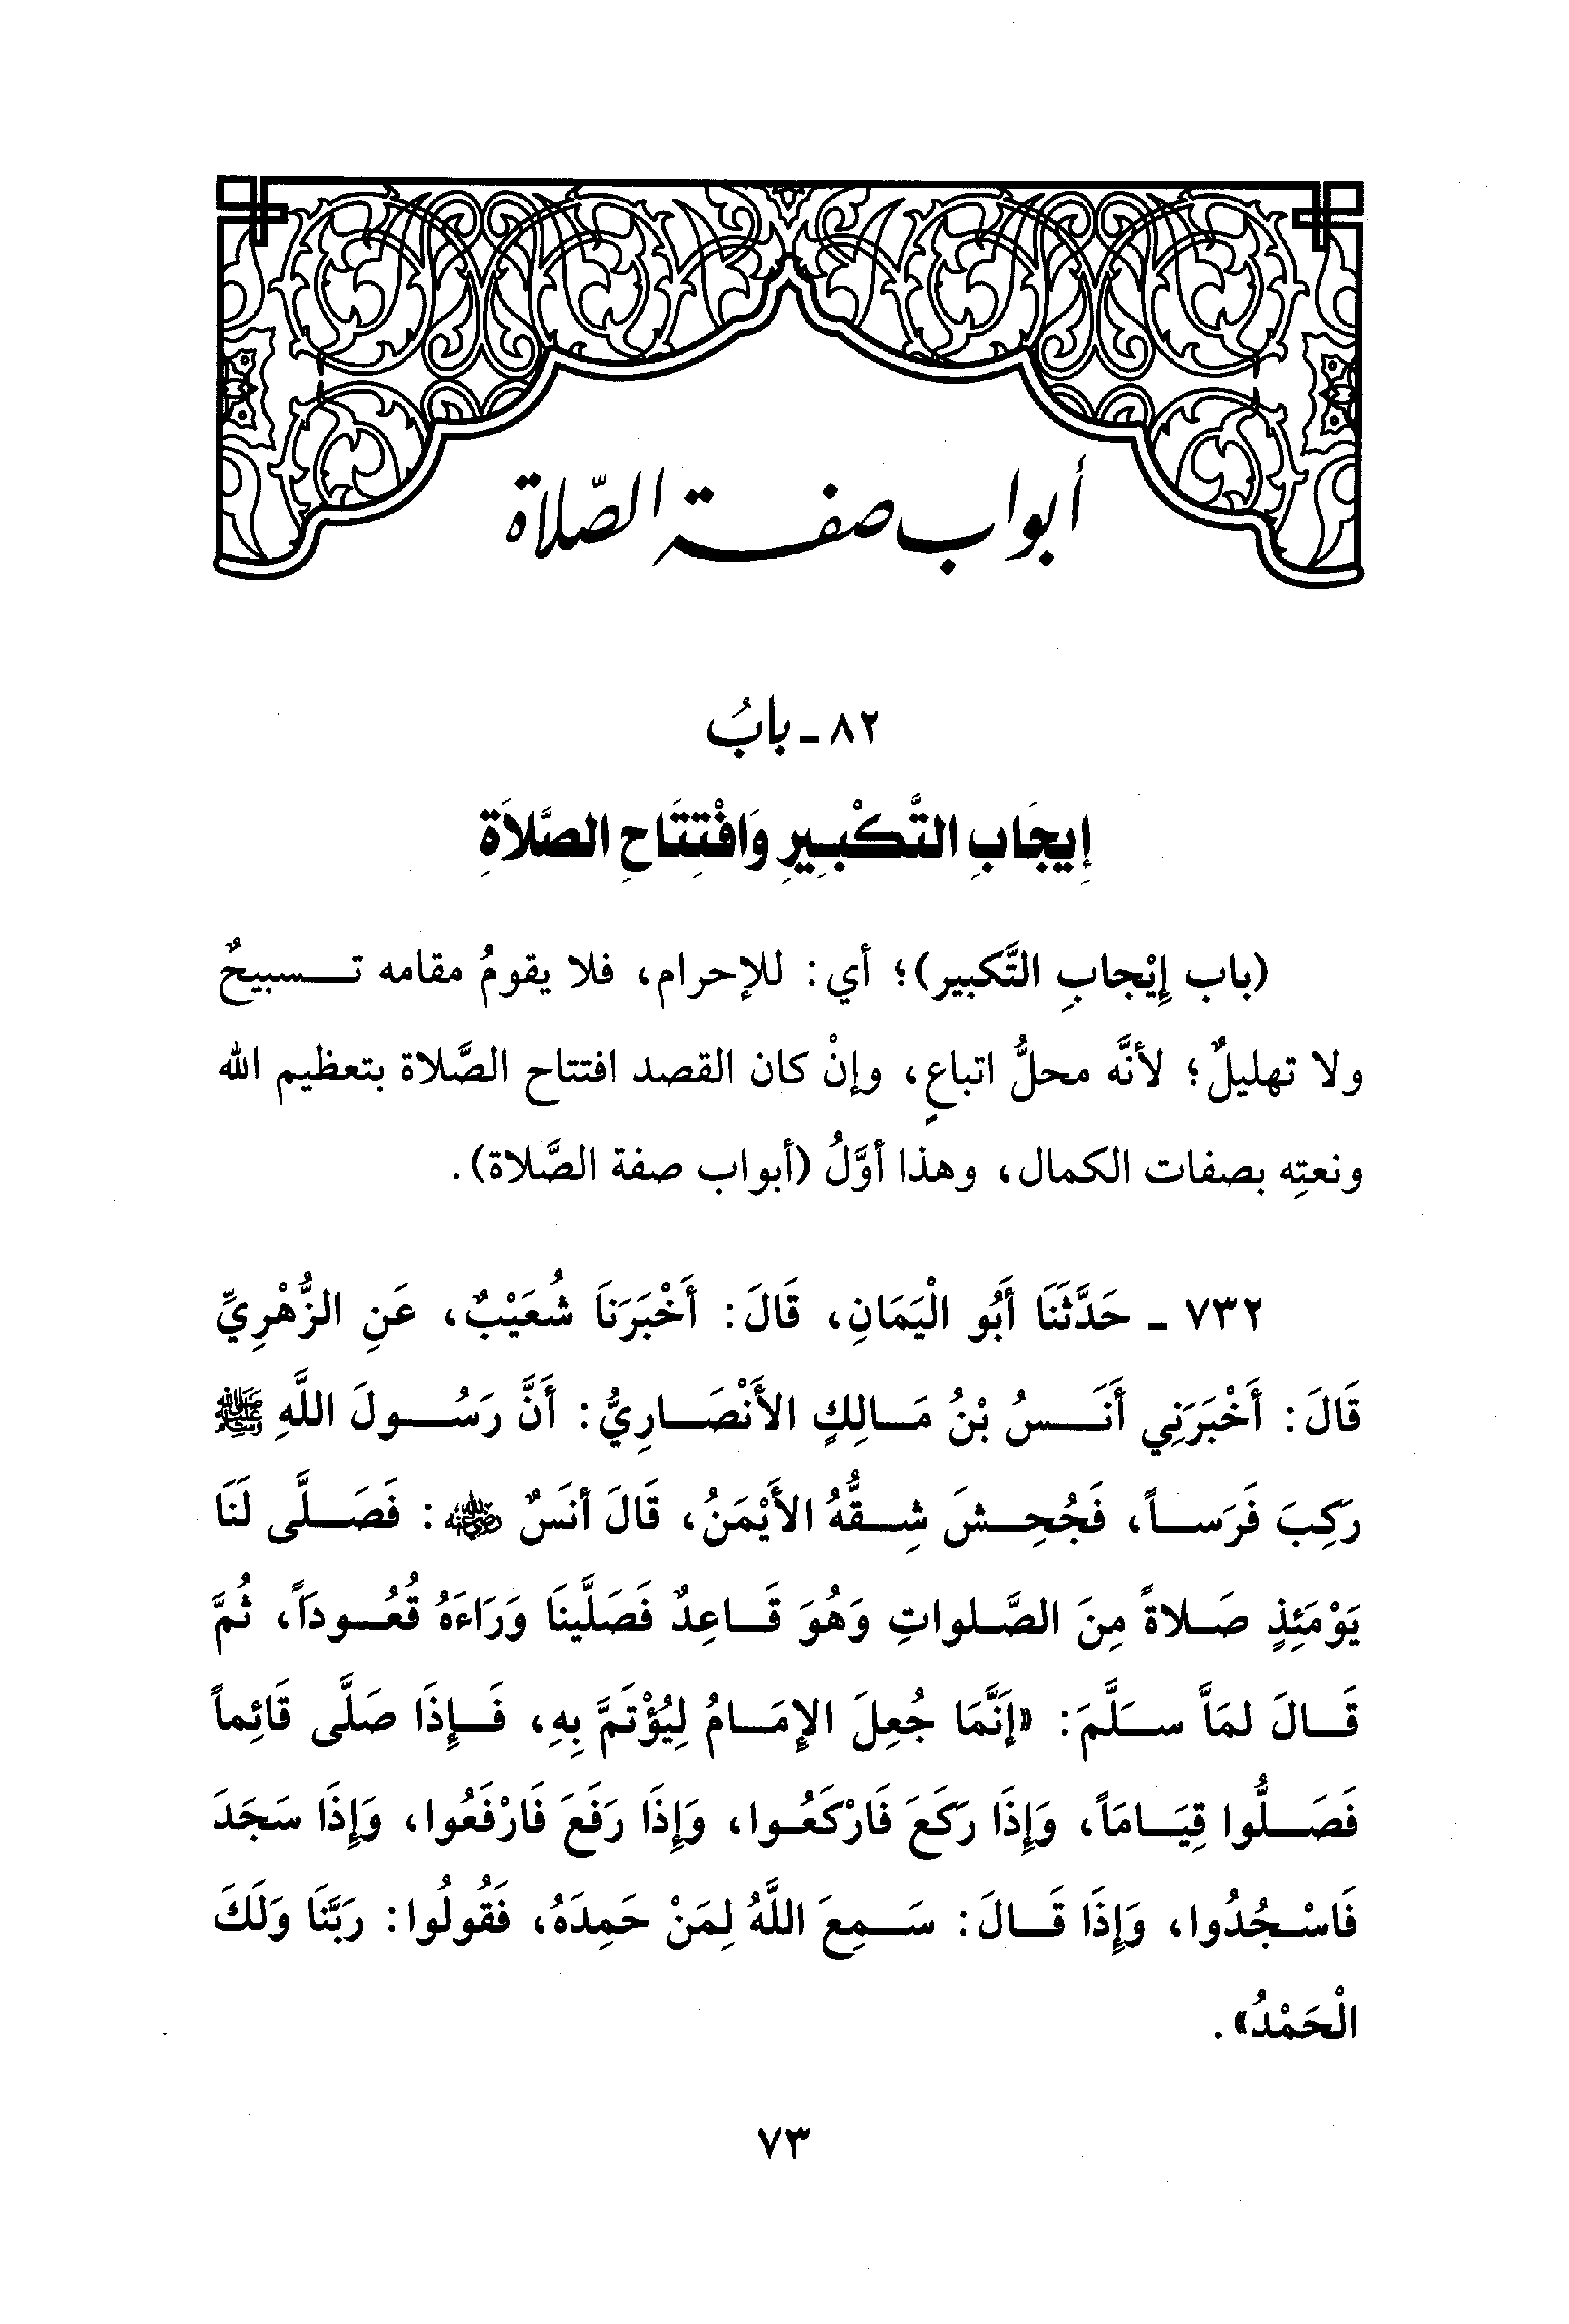 أبواب صفة الصّلاة
٨٢ - بابُ
إِيجَابِ التَّكْبِيرِ وَافْتِتَاحِ الصَّلاَةِ
(باب إِيْجابِ التَّكبير)؛ أي: للإحرام، فلا يقومُ مقامه تسبيحٌ
ولا تهليلٌ؛ لأنَّه محلُّ اتباعٍ، وإنْ كان القصد افتتاح الصَّلاة بتعظيم الله
ونعتِه بصفات الكمال، وهذا أوَّلُ (أبواب صفة الصَّلاة).
٧٣٢ - حَدَّثَنَا أَبُو الْيَمَانِ، قَالَ: أَخْبَرَنَا شُعَيْبٌ، عَنِ الزُّهْرِيِّ
قَالَ: أَخْبَرَنِي أَنَسُ بْنُ مَالِكٍ الأَنْصَارِيُّ: أَنَّ رَسُولَ اللَّهِ ﷺ
رَكِبَ فَرَساً، فَجُحِشَ شِقُّهُ الأَيْمَنُ، قَالَ أنَسٌ رضي الله عنه: فَصَلَّى لَنَا
يَوْمَئِذٍ صَلاةً مِنَ الصَّلواتِ وَهُوَ قَاعِدٌ فَصَلَّينَا وَرَاءَهُ قُعُوداً، ثُمَّ
قَالَ لمَاَّ سلَّمَ: «إنَّمَا جُعِلَ الإِمَامُ لِيُؤْتَمَّ بِهِ، فَإِذَا صَلَّى قَائِماً
فَصَلُّوا قِيَامَاً، وَإِذَا رَكَعَ فَارْكَعُوا، وَإِذَا رَفَعَ فَارْفَعُوا، وَإِذَا سَجَدَ
فَاسْجُدُوا، وَإِذَا قَالَ: سَمِعَ اللَّهُ لِمَنْ حَمِدَهُ، فَقُولُوا: رَبَّنَا وَلَكَ
الْحَمْدُ».
٧٣